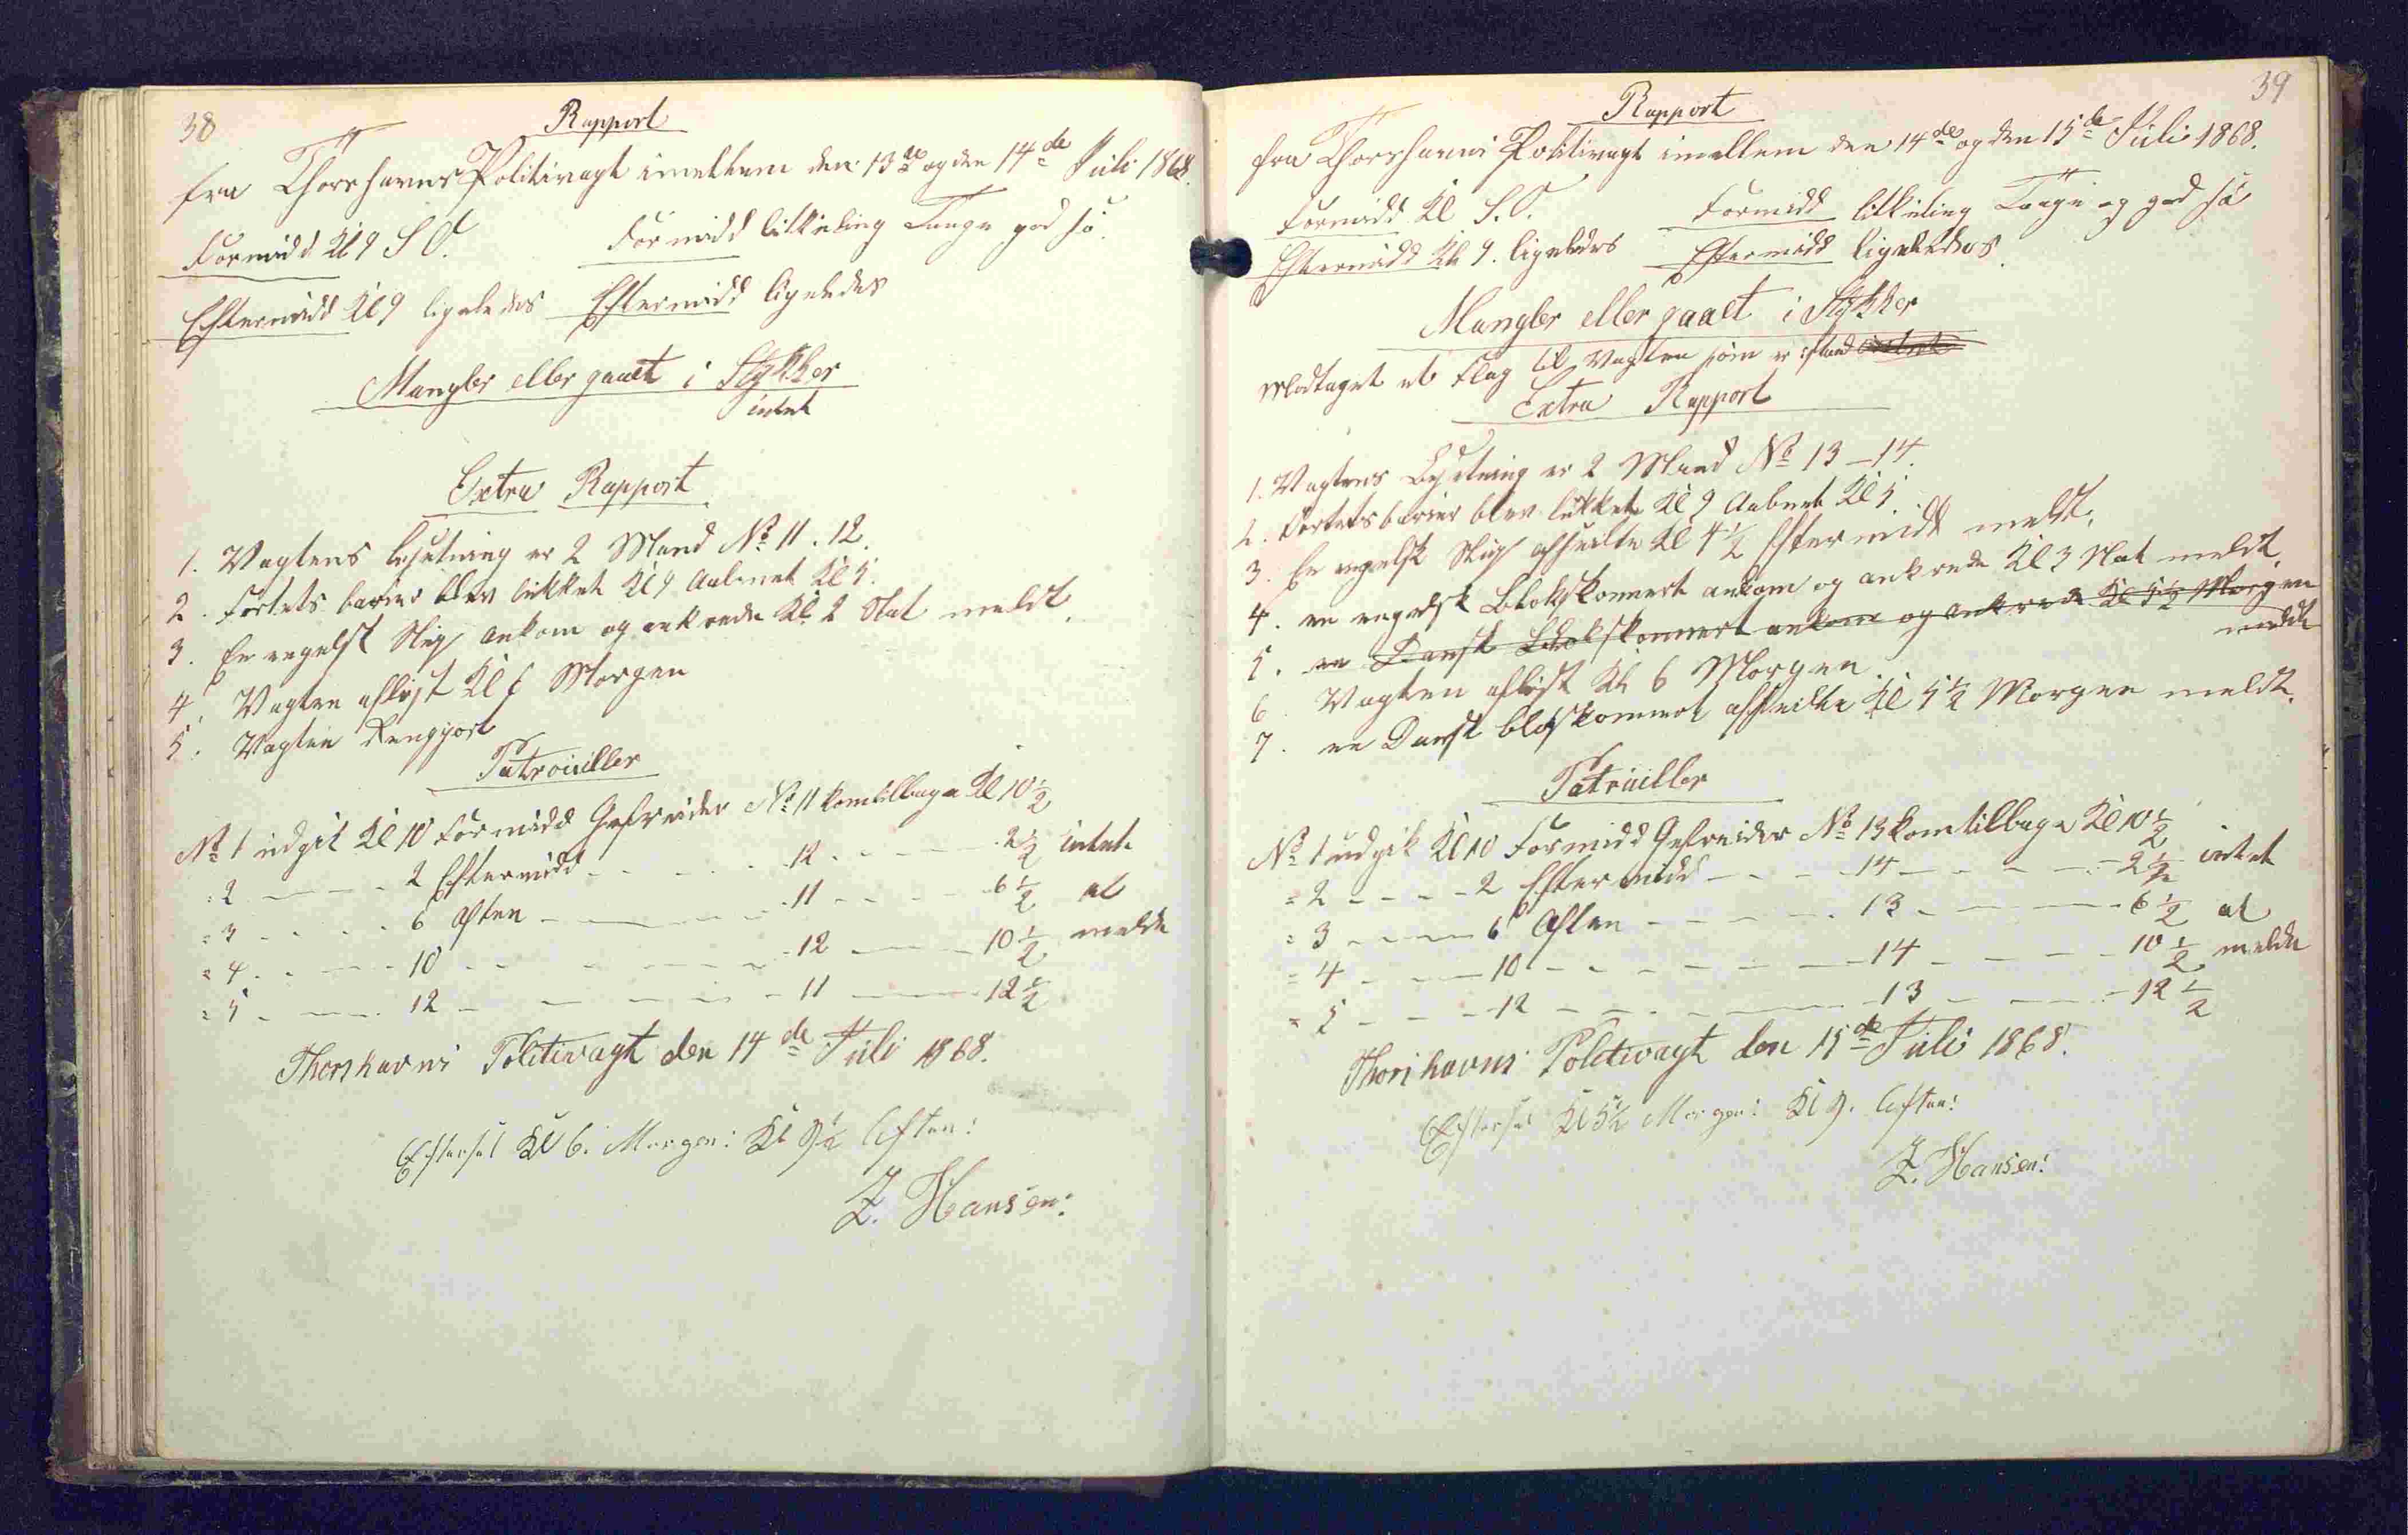 38
Rapport
fra Thorshavns Politivagt imellem den 13de og den 14de Juli 1868.
Formidd Kl 9 S O. Formidd litkuling Taage god Sö.
Eftermidd Kl 9 ligeledes Eftermidd ligeledes
Mangler eller gaaet i Stykker
intet
Extra Rapport
1. Vagtens besetning er 2 Mand No 11. 12.
2. Fortets barier blev lukket Kl 9 Aabnet Kl 5.
3. En engelsk Slup ankom og ankrede Kl. 2 Nat meldt.
4. Vagten aflöst Kl 6 Morgen
5. Vagten Rengjort
Patrouiller
No 1 udgik Kl 10 Formidd Gefreider No 11 kom tilbage Kl 10 1/2
= 2 - - - - 2 Eftermidd - - - - - 12 - - - - 2 1/2 intet
= 3 - - - - 6 Aften - - - - - 11 - - - - 6 1/2 at
= 4 - - - - 10 - - - - - 12 - - - - 10 1/2 melde
= 5 - - - - 12 - - - - - 11 - - - - 12 1/2
Thorshavns Politivagt den 14de Juli 1868.
Efterset Kl 6. Morgen: Kl 9 1/2 Aften:
Z. Hansen:
39
Rapport
fra Thorshavns Politivagt imellem den 14de og den 15de Juli 1868.
Formidd Kl S. O. Formidd litkuling Taage og god Sö
Eftermidd Kl 9. ligeledes Eftermidd ligeledes.
Mangler eller gaaet i Stykker
Modtaget et Flag til Vagten som er istand
Extra Rapport
1. Vagtens Besetning er 2 Mand No 13 - 14.
2. Fortets barier blev lukket Kl 9 Aabnet Kl 5.
3. En engelsk Slup afseilte Kl 4 1/2 Eftermidd meldt.
4. en engelsk Blokskonnert ankom og ankrede Kl 3 Nat meldt.
5. en Dansk Blokskonnert ankom og ankrede Kl 5 1/2 Morgen
meldt
6. Vagten aflöst Kl 6 Morgen.
7. en Dansk blokskonnert afseilte Kl 5 1/2 Morgen meldt.
Patruiller
No 1 udgik Kl 10 Formidd Gefreider No 13 kom tilbage Kl 10 1/2
= 2 - - - - 2 Eftermidd - - - - 14 - - - - 2 1/2 intet
= 3 - - - - 6 Aften - - - - 13 - - - - 6 1/2 at
= 4 - - - - 10 - - - - - 14 - - - - 10 1/2 melde
= 5 - - - - 12 - - - - - 13 - - - - 12 1/2
Thorshavns Politivagt den 15de Juli 1868.
Efterset Kl 5 1/2 Morgen: Kl 9. Aften:
Z. Hansen: